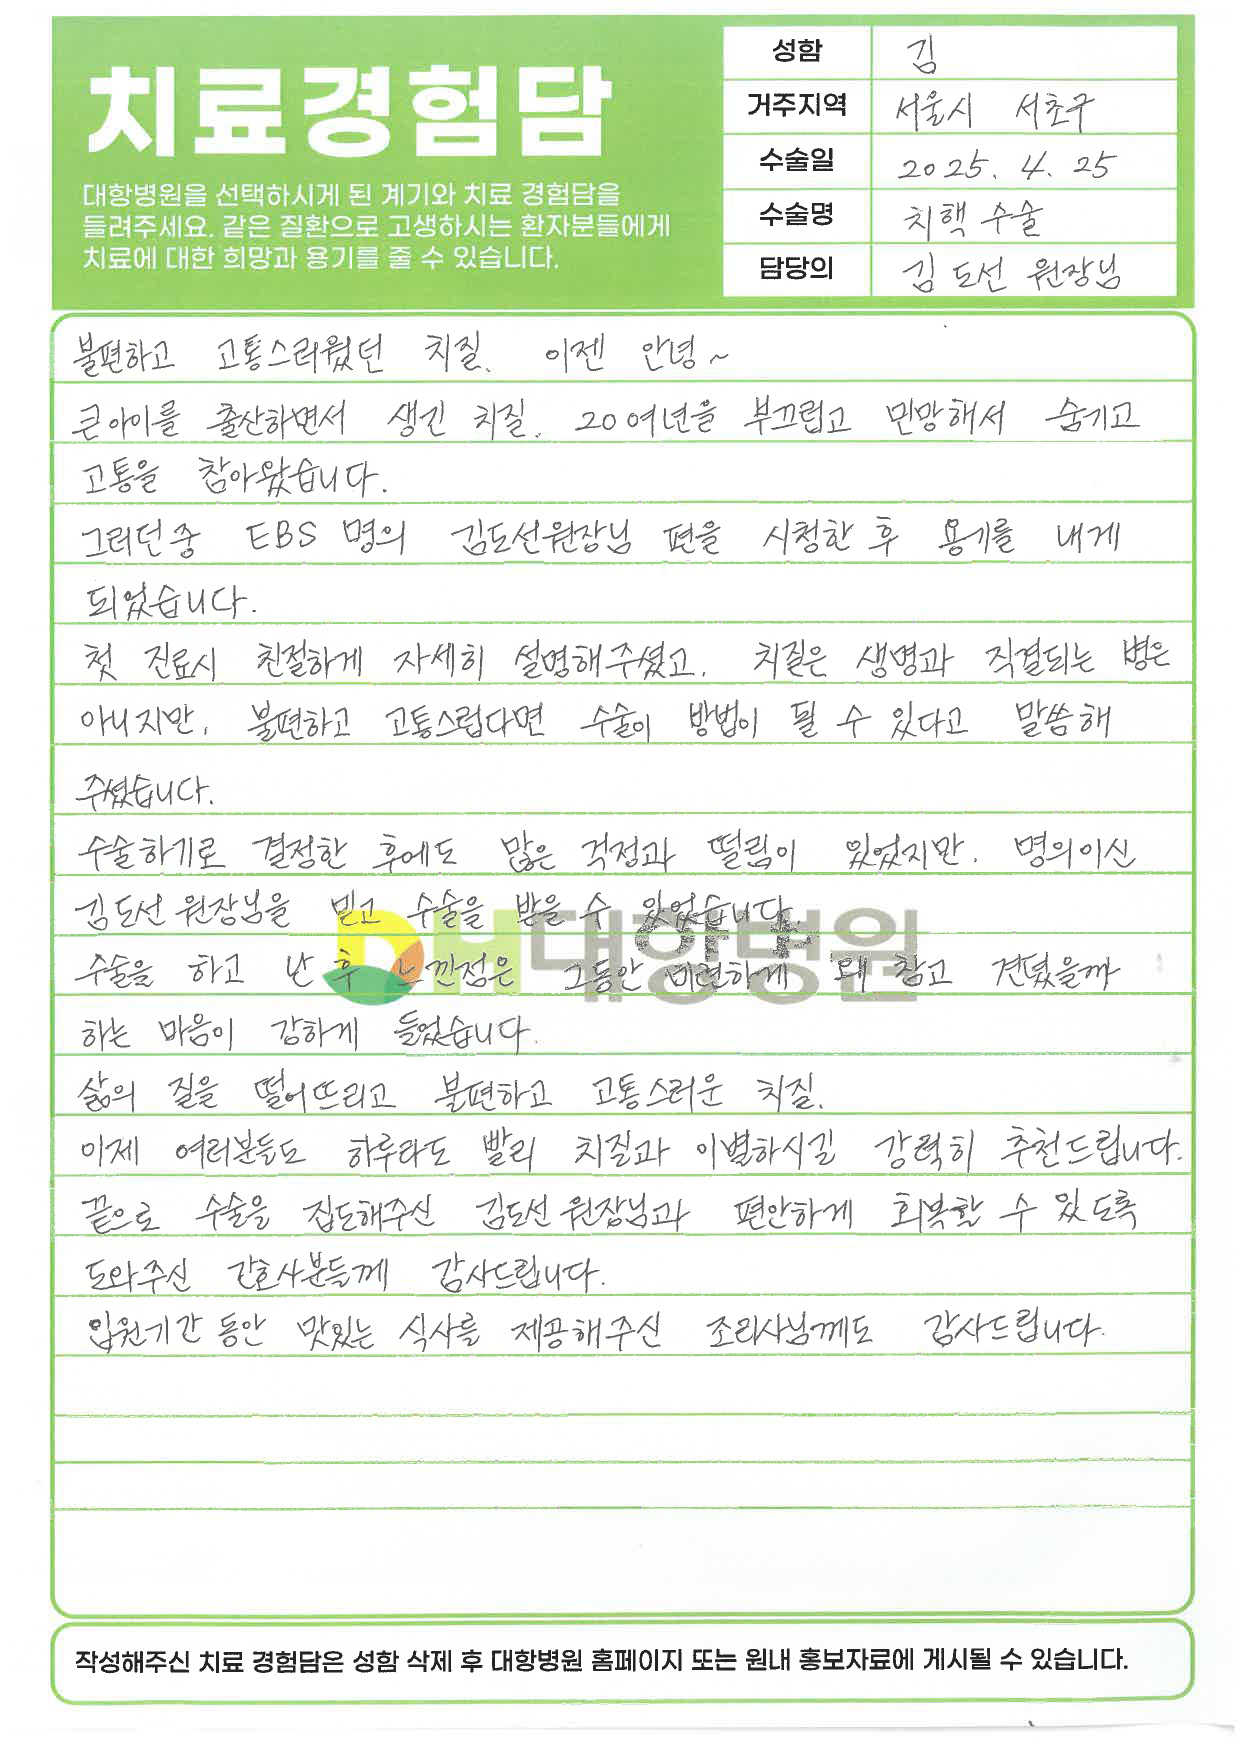 치료경험담
대항병원을 선택하시게 된 계기와 치료 경험담을
들려주세요. 같은 질환으로 고생하시는 환자분들에게
치료에 대한 희망과 용기를 줄 수 있습니다.
성함 김
거주지역 서울시 서초구
수술일 2025. 4. 25
수술명 치핵 수술
담당의 김도선 원장님
불편하고 고통스러웠던 치질. 이젠 안녕~
큰아이를 출산하면서 생긴 치질. 20여년을 부끄럽고 민망해서 숨기고
고통을 참아왔습니다.
그러던중 EBS 명의 김도선원장님 편을 시청한 후 용기를 내게
되었습니다.
첫 진료시 친절하게 자세히 설명해주셨고, 치질은 생명과 직결되는 병은
아니지만, 불편하고 고통스럽다면 수술이 방법이 될 수 있다고 말씀해
주셨습니다.
수술하기로 결정한 후에도 많은 걱정과 떨림이 있었지만, 명의이신
김도선 원장님을 믿고 수술을 받을 수 있었습니다.
DH대항병원
수술을 하고 난 후 느낀점은 그동안 미련하게 왜 참고 견뎠을까
하는 마음이 강하게 들었습니다.
삶의 질을 떨어뜨리고 불편하고 고통스러운 치질.
이제 여러분들도 하루라도 빨리 치질과 이별하시길 강력히 추천드립니다.
끝으로 수술을 집도해주신 김도선 원장님과 편안하게 회복할 수 있도록
도와주신 간호사분들께 감사드립니다.
입원기간 동안 맛있는 식사를 제공해주신 조리사님께도 감사드립니다.
작성해주신 치료 경험담은 성함 삭제 후 대항병원 홈페이지 또는 원내 홍보자료에 게시될 수 있습니다.